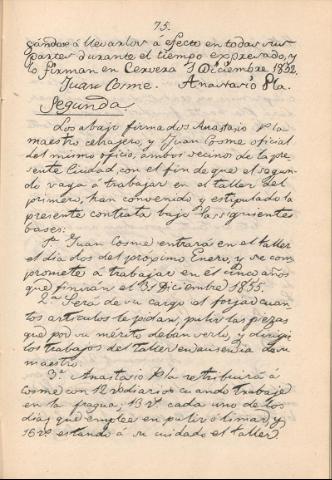 75.
gándose á llevarlos á efecto en todas sus
partes durante el tiempo expresado, y
lo firman en Cervera 3 Diciembre 1832.
Juan Cosme. Anastasio Pla.
Segunda
Los abajo firmados Anastasio Pla
maestro cerajero, y Juan Cosme oficial
del mismo oficio, ambos vecinos de la pre-
sente Ciudad, con el fin de que el segun-
do vaya á trabajar en el taller del
primero, han convenido y estipulado la
presente contrata bajo las siguientes
bases:
1ª Juan Cosme entrará en el taller
el dia dos del procsimo Enero, y se com-
promete á trabajar en él cinco años
que finirán el 31 Diciembre 1855.
2ª Será de su cargo el forjar cuan
tos artículos le pidan, pulir las piezas
que por su mérito deban serlo, y dirigir
los trabajos del taller en ausencia de su
maestro.
3ª Anastasio Pla retribuirá á
Cosme con 12 rs diarios cuando trabaje
en la fragua, 13 rs cada uno de los
dias que emplee en pulir ó limar, y
16 rs estando á su cuidado el taller.